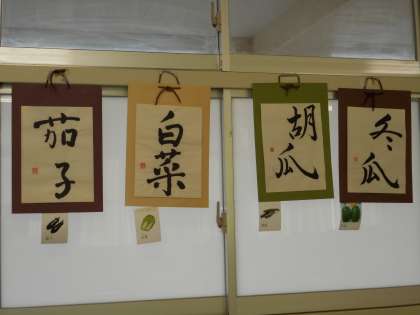 茄子
白菜
胡瓜
冬瓜